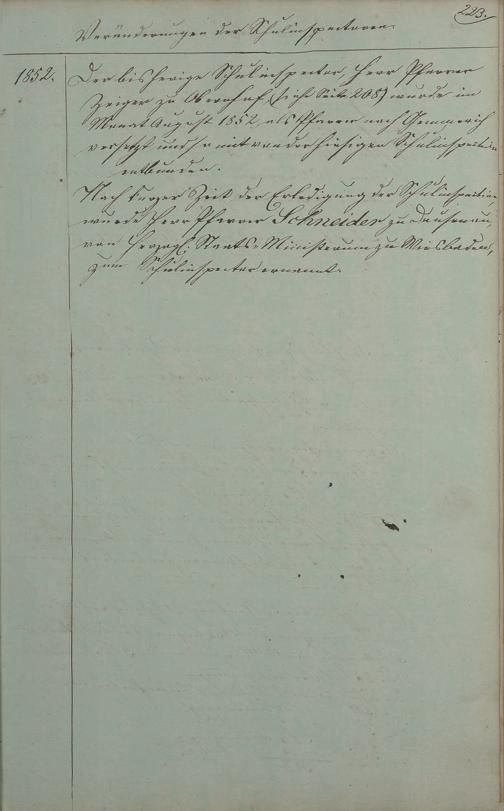 223.
Veränderungen der Schulinspectoren.
1852. Der bisherige Schulinspector, Herr Pfarrer
Zeiger zu Obernhof, (sieht Seite 208) wurde im
Monat August 1852, als Pfarrer nach Gemmerich
versetzt und somit von der hiesigen Schulinspection
entbunden.
Nach kurzer Zeit der Erledigung der Schulinspection
wurde Herr Pfarrer Schneider zu Dausenau,
von Herzogl. Staats-Ministerium zu Wiesbaden,
zum Schulinspector ernannt.